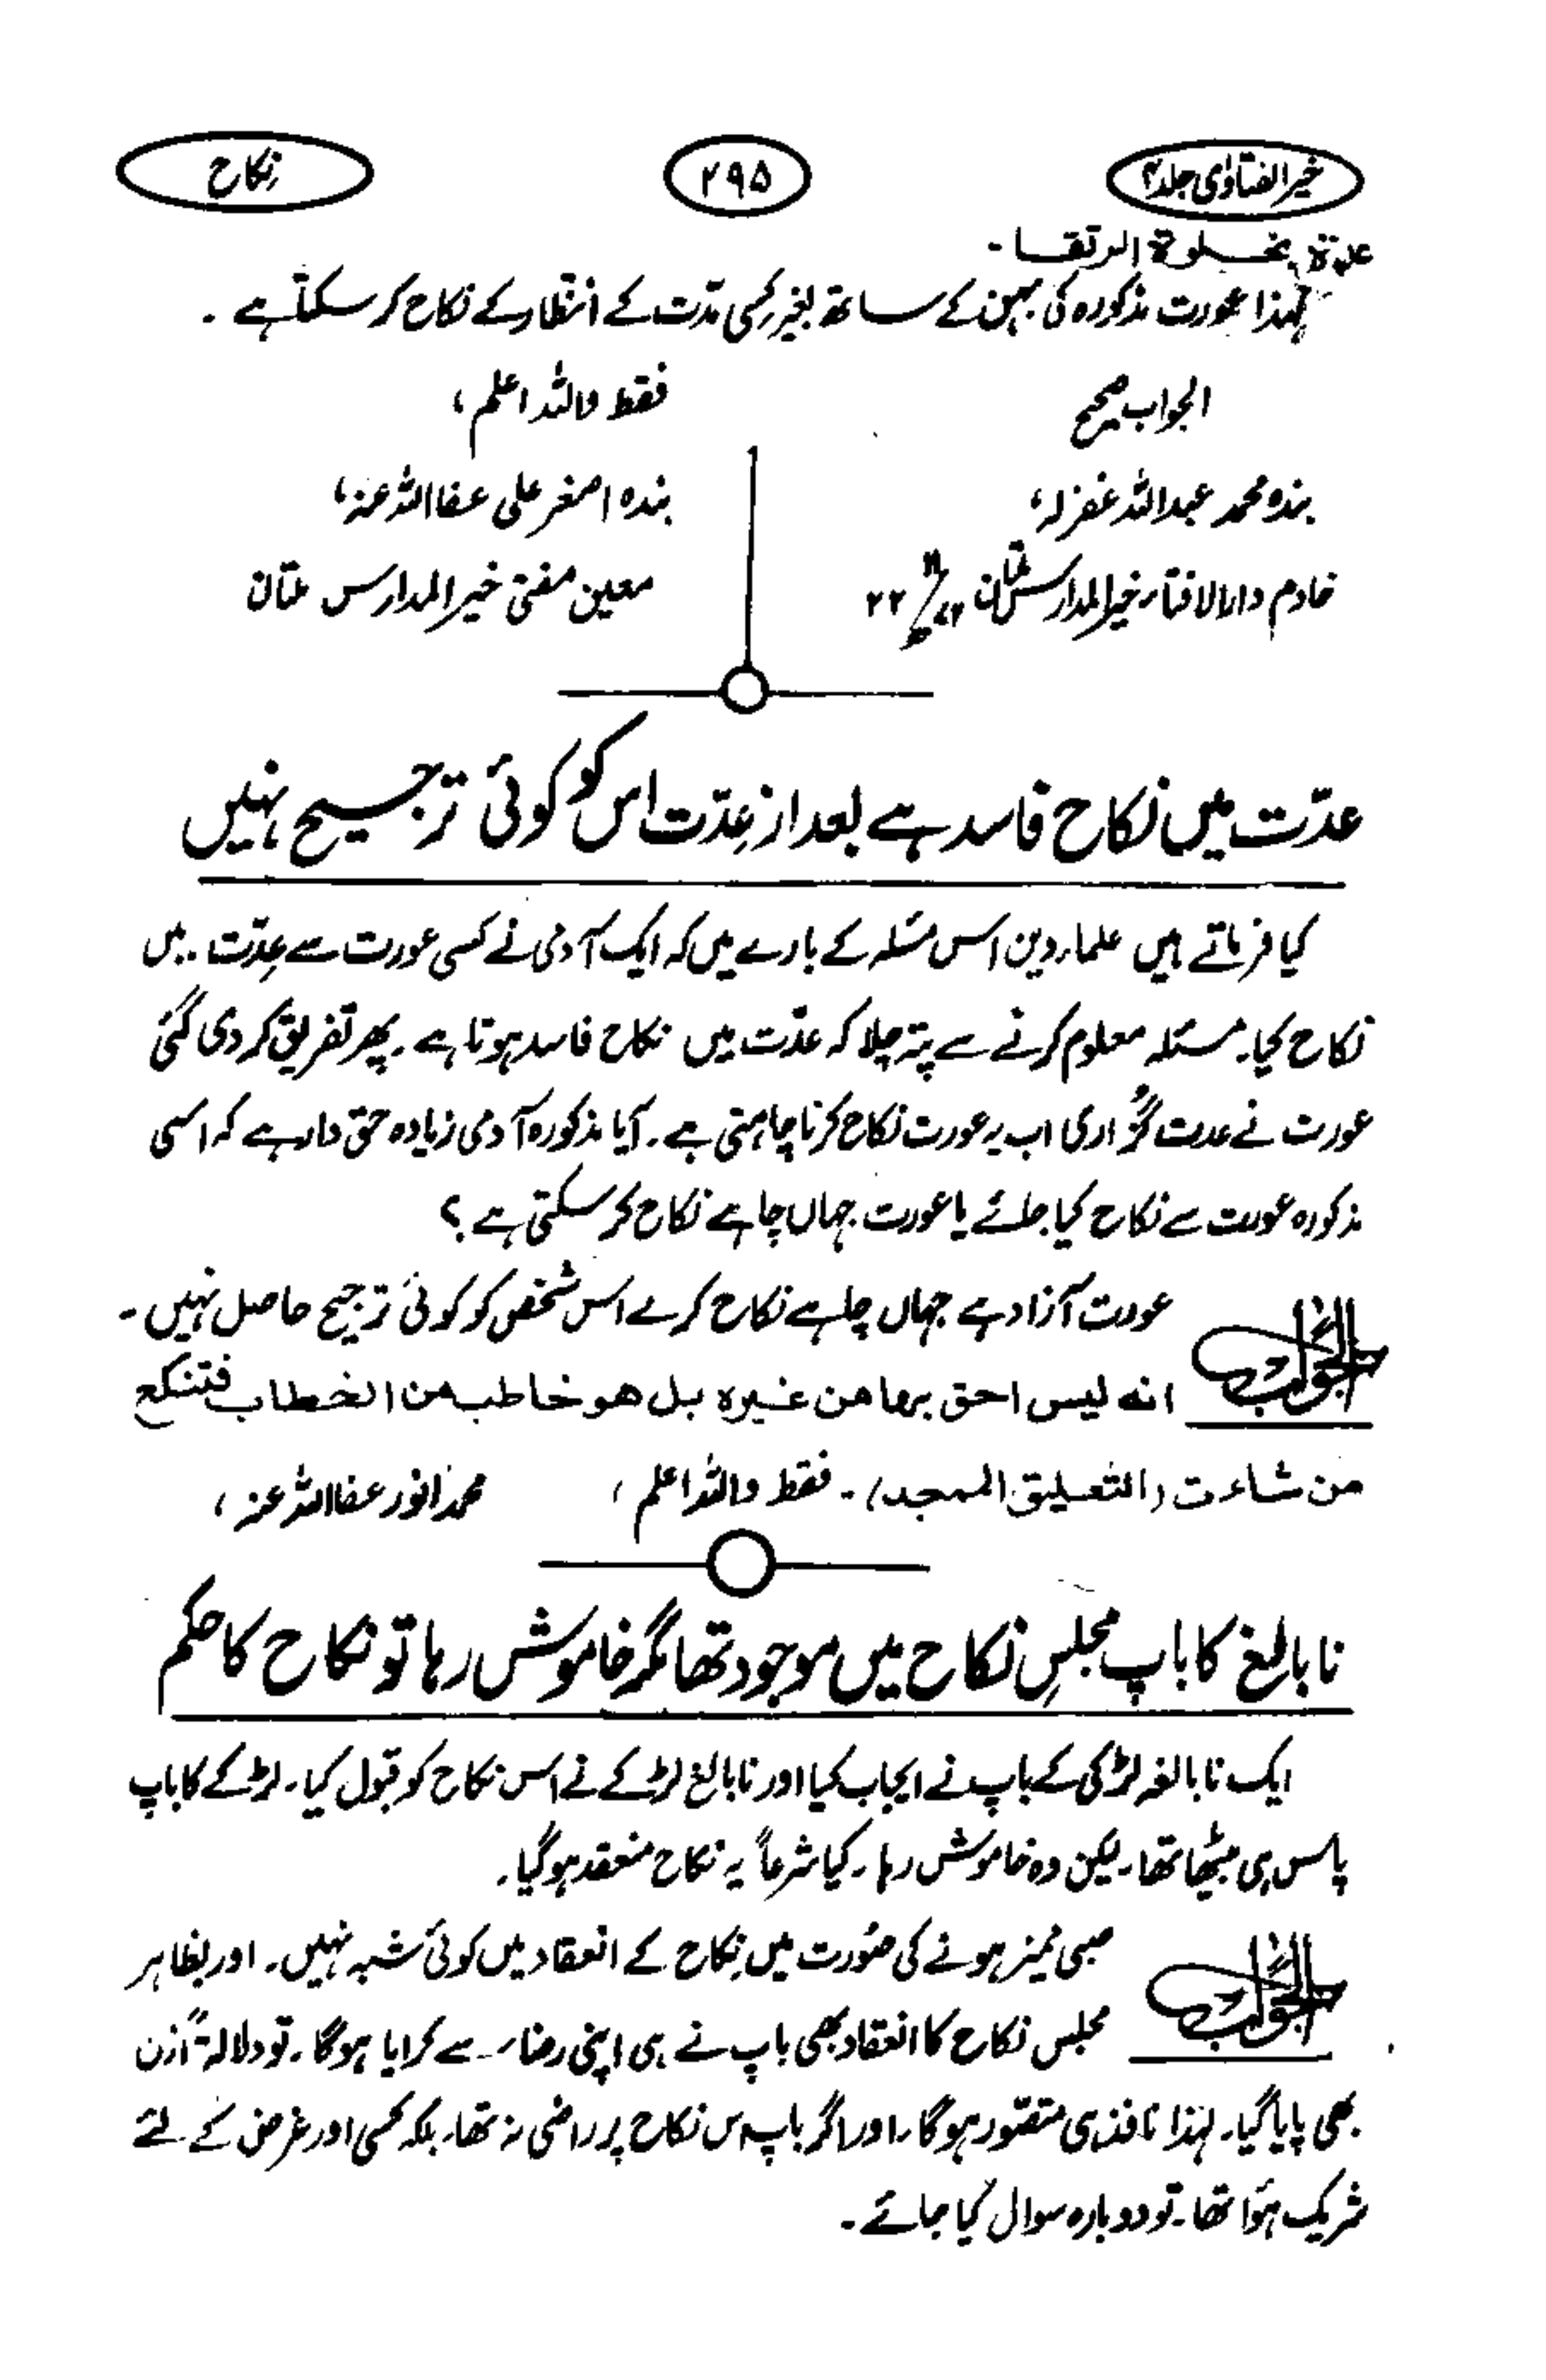 خیرالفتاوٰی جلد۴
۲۹۵
نکاح
عدة بخلوة الرتقا۔
لہٰذا عورت مذکورہ کی بہن کے ساتھ بغیر کسی مدّت کے انتظار کے نکاح کر سکتا ہے ۔
الجواب صحیح
فقط واللہ اعلم ،
بندہ محمد عبداللہ غفرلہ،
بندہ اصغر علی عفا اللہ عنہ،
خادم دارالافتاء خیرالمدارس ملتان
معین مفتی خیرالمدارس ملتان
عدّت میں نکاح فاسد ہے بعد از عِدّت اس کو کوئی ترجیح نہیں
کیا فرماتے ہیں علماء دین اس مسٔلہ کے بارے میں کہ ایک آدمی نے کسی عورت سے عِدّت میں
نکاح کیا۔ مسئلہ معلوم کرنے سے پتہ چلا کہ عدّت میں نکاح فاسد ہوتا ہے۔ پھر تفریق کر دی گئی
عورت نے عدت گزاری اب یہ عورت نکاح کرنا چاہتی ہے۔ آیا مذکورہ آدمی زیادہ حق دار ہے کہ اسی
مذکورہ عورت سے نکاح کیا جائے یا عورت جہاں چاہے نکاح کر سکتی ہے ؟
الجواب عورت آزاد ہے جہاں چاہے نکاح کرے اس شخص کو کوئی ترجیح حاصل نہیں ۔
انه ليس احق بها من غيره بل هو خاطب من الخطاب فتنكح
من شاءت (التعليق الممجد)۔ فقط واللہ اعلم ، محمد انور عفا اللہ عنہ ،
نابالغ کا باپ مجلسِ نکاح میں موجود تھا مگر خاموش رہا تو نکاح کا حکم
ایک نابالغہ لڑکی کے باپ نے ایجاب کیا اور نابالغ لڑکے نے اس نکاح کو قبول کیا۔ لڑکے کا باپ
پاس ہی بیٹھا تھا۔ لیکن وہ خاموش رہا۔ کیا شرعاً یہ نکاح منعقد ہوگیا۔
الجواب صبی ممیز ہونے کی صُورت میں نکاح کے انعقاد میں کوئی شبہ نہیں۔ اور بظاہر
مجلس نکاح کا انعقاد بھی باپ نے ہی اپنی رضاء سے کرایا ہوگا۔ تو دلالۃً اذن
بھی پایا گیا۔ لہٰذا نافذ ہی متصّور ہوگا۔ اور اگر باپ اس نکاح پر راضی نہ تھا۔ بلکہ کسی اور غرض کے لئے
شریک ہوَا تھا۔ تو دوبارہ سوال کیا جائے۔